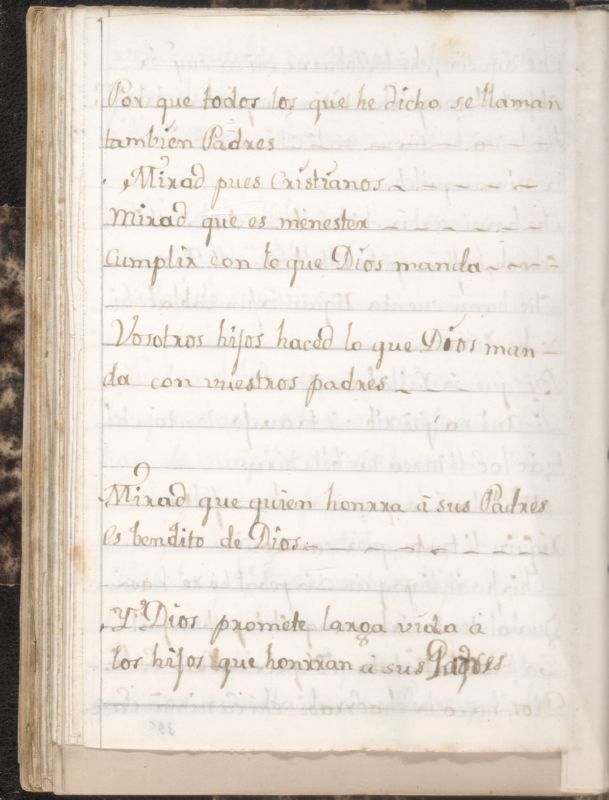 Por que todos los que he dicho se llaman
tambien Padres
Mirad pues Cristianos
Mirad que es menester
Cumplir con lo que Dios manda
Vosotros hijos haced lo que Dios man-
da con vuestros padres
Mirad que quien honrra â sus Padres
Es bendito de Dios
Y Dios promete larga vida â
los hijos que honrran â sus Padres